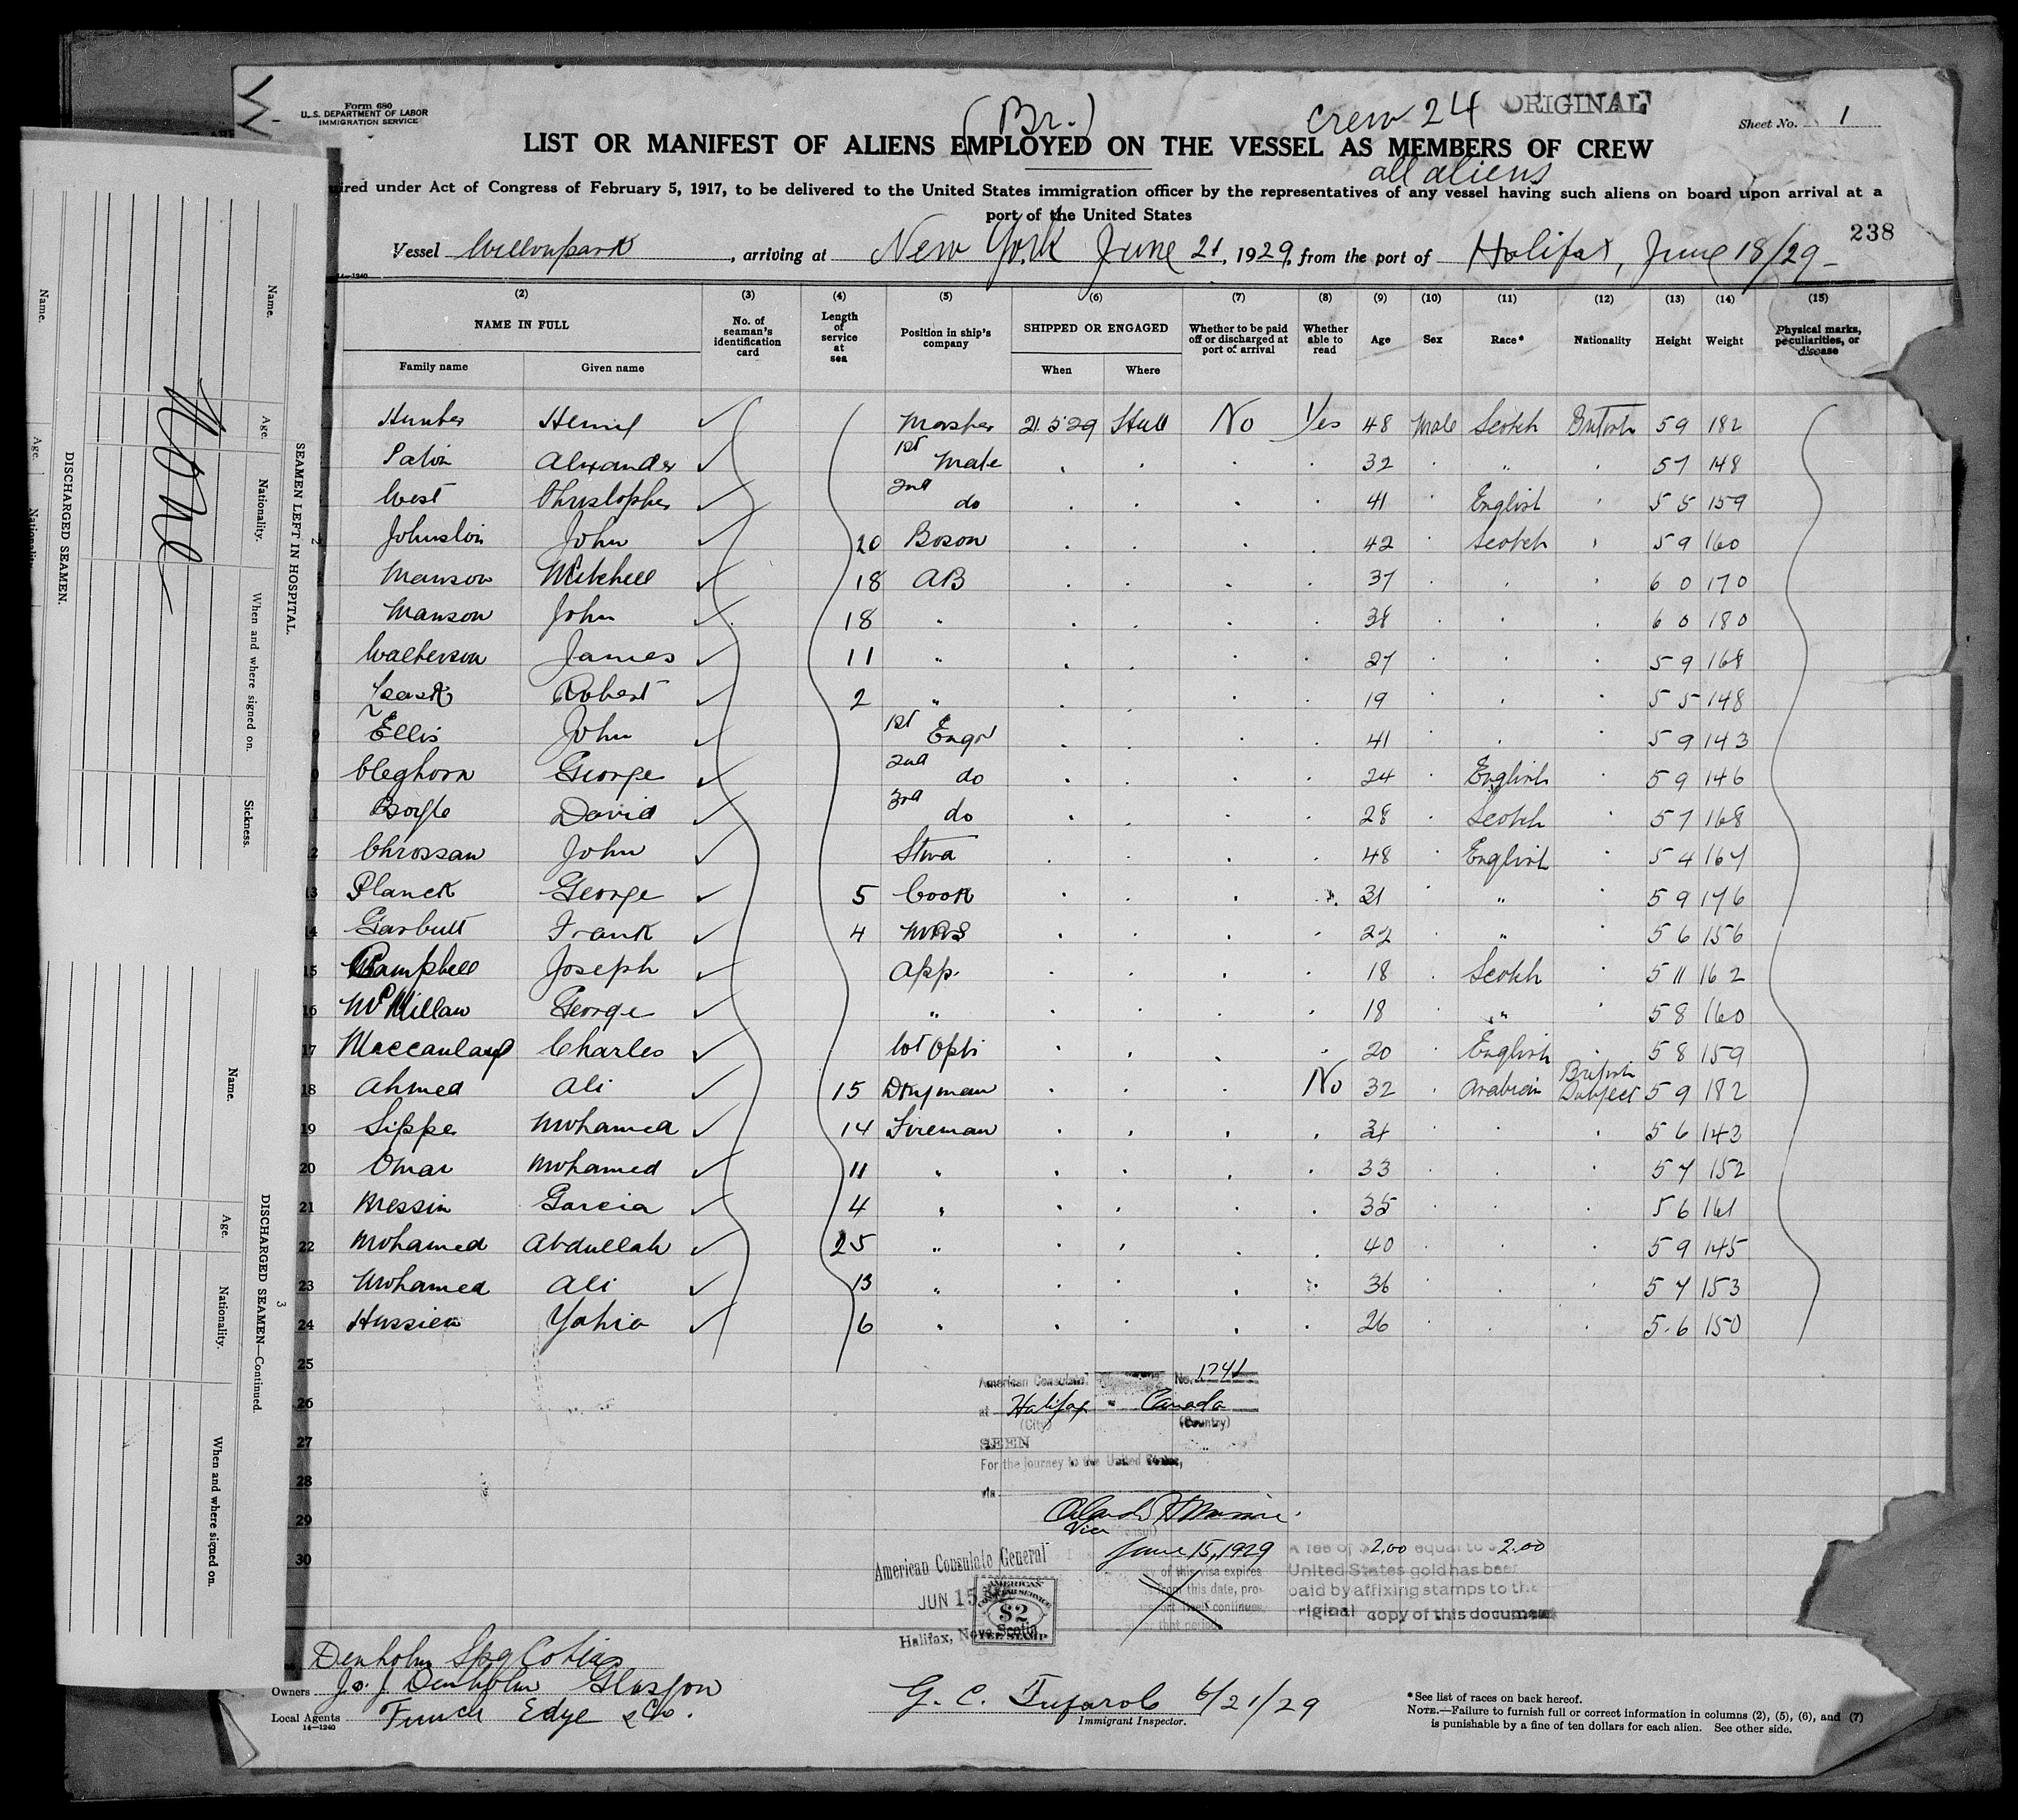 Form 680
U. S. DEPARTMENT OF LABOR
IMMIGRATION SERVICE
(Br.)
Crew 24
ORIGINAL
Sheet No. 1
LIST OR MANIFEST OF ALIENS EMPLOYED ON THE VESSEL AS MEMBERS OF CREW
all aliens
ired under Act of Congress of February 5, 1917, to be delivered to the United States immigration officer by the representatives of any vessel having such aliens on board upon arrival at a
port of the United States
238
Vessel Willowpark, arriving at New York June 21, 1929, from the port of Halifax, June 18/29
14—1240
(2) (3) (4) (5) (6) (7) (8) (9) (10) (11) (12) (13) (14) (15)
NAME IN FULL
Family name Given name
No. of seaman's identification card
Length of service at sea
Position in ship's company
SHIPPED OR ENGAGED
When Where
Whether to be paid off or discharged at port of arrival
Whether able to read
Age Sex Race* Nationality Height Weight
Physical marks, peculiarities, or disease
Hunter Henry Master 21.5.29 Hull No Yes 48 Male Scotch British 5 9 182
Alexander 1st Mate 32 " 5 7 148
West Christopher 2nd do 41 English 5 5 159
Johnston John 20 Boson 42 Scotch 5 9 160
Manson Mitchell 18 AB 37 6 0 170
Manson John 18 " 38 6 0 180
7 Watterson James 11 " 27 5 9 168
8 Leask Robert 2 " 19 5 5 148
9 Ellis John 1st Engr 41 5 9 143
0 Cleghorn George 2nd do 24 English 5 9 146
1 Boyle David 3rd do 28 Scotch 5 7 168
2 Chrossan John Stwd 48 English 5 4 164
13 Planck George 5 Cook 21 " 5 9 176
14 Garbutt Frank 4 M R S 22 " 5 6 156
15 Campbell Joseph App. 18 Scotch 5 11 162
16 McMillan George " 18 " 5 8 160
17 Maccaulay Charles Wt Optr 20 English 5 8 159
18 Ahmed Ali 15 Dkyman No 32 Arabian British Subject 5 9 182
19 Sippe Mohamed 14 Fireman 5 6 143
20 Omar Mohamed 11 " 33 5 7 152
21 Messin Garcia 4 " 35 5 6 161
22 Mohamed Abdullah 25 " 40 5 9 145
23 Mohamed Ali 13 " 36 5 7 153
24 Hussien Yahia 6 " 26 5.6 150
25
26
27
28
29
30
American Consulate No. 1741
at Halifax Canada
(City) (Country)
SEEN
For the journey to the United States,
via
Vice
June 15, 1929
of this visa expires
from this date, pro-
continues
that period
American Consulate General
JUN 15
Halifax, Nova Scotia
AMERICAN
$2
FEE STAMP
A fee of $2.00 equal to 2.00
United States gold has been
paid by affixing stamps to the
original copy of this document
Denholm Spg Co
Owners J. & J. Denholm Glasgow
Local Agents Funch Edye & Co.
14—1240
G. C. 6/21/29
Immigrant Inspector.
*See list of races on back hereof.
NOTE.—Failure to furnish full or correct information in columns (2), (5), (6), and (7)
is punishable by a fine of ten dollars for each alien. See other side.
SEAMEN LEFT IN HOSPITAL.
Name. Age. Nationality. When and where signed on. Sickness.
None
DISCHARGED SEAMEN.
Name. Age. Nationality.
DISCHARGED SEAMEN—Continued.
Name. Age. Nationality. When and where signed on.
2
3